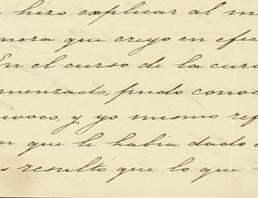 hizo explicar al m
nera que creyo en efec
En el curso de la cura
menzado, pudo conoc
uvoco, y yo mismo ref
n que le habia dado
s resultó que lo que